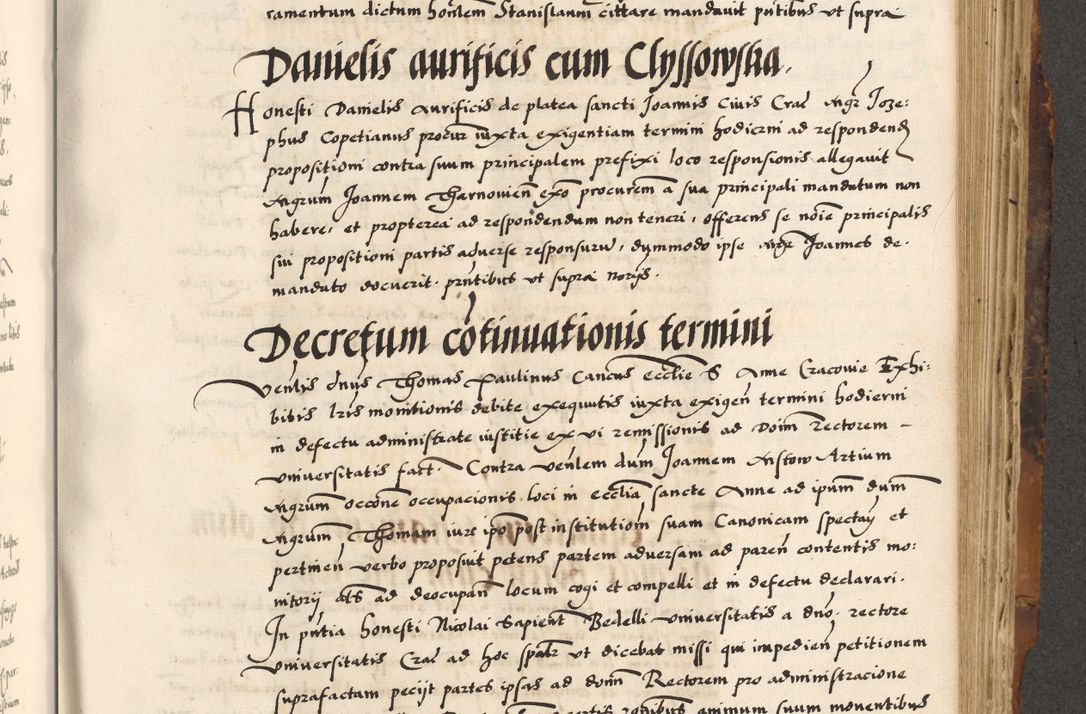 ramentum dictum honlem Stanislaum cittare mandavit pntibus vt supra
Danielis aurificis cum Clyssowska.
Honesti Danielis Aurificis de platea sancti Joannis Civis Crac Mgr Joze:
phus Copetianus procur iuxta exigentiam termini hodierni ad respondend
propositioni contra suum principalem prefixi loco responsionis allegavit
Mgrum Joannem Tharnovien exo procurem a sua principali mandatum non
habere, et propterea ad respondendum non teneri, offerens se noie principalis
sui propositioni partis adverse responsuru, dummodo ipse Mgr Joannes de
mandato docuerit. pntibus vt supra norys.
Decretum cotinuationis termini
Venlis dnus Thomas Paulinus Cancus ecclie S Anne Cracovie Exhi:
bitis lris monitionis debite exequutis iuxta exigen termini hodierni
in defectu administrate iustitie ex vi remissionis ad Doim Rectorem
universitatis fact. Contra venlem dum Joannem Mstow Artium
Mgrum occone occupacionis loci in ecclia sancte Anne ad ipum dum
Mgrum Thomam iure ipo post institutiom suam Canonicam spectan et
pertinen verbo proposuit petens partem adversam ad paren contentis mo:
nitorij als ad deocupan locum cogi et compelli et in defectu declarari.
In pntia honesti Nicolai Sapient Bedelli universitatis a dno rectore
universitatis Crac ad hoc spalr vt dicebat missi qui impedien petitionem
suprafactam pecijt partes ipsas ad domm Rectorem pro administracione
certis ronibus animum suum moventibus